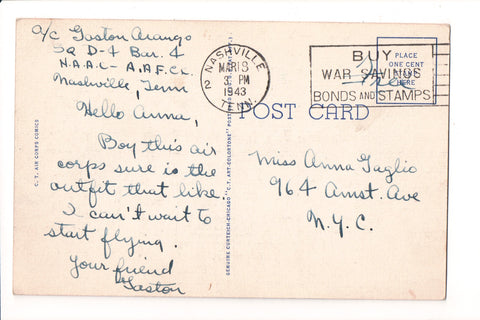 a/c Gaston Arango
Sq D-4 Bar. 4
N.A.A.C - A.A.F.C.C.
Nashville, Tenn
Hello Anna,
Boy this air
corps sure is the
outfit that like.
I can't wait to
start flying.
Your friend
Gaston
C. T. AIR CORPS COMICS
GENUINE CURTEICH-CHICAGO "C.T. ART-COLORTONE" POST
NASHVILLE
2
MAR 13
3 PM
1943
TENN.
BUY
WAR SAVINGS
BONDS AND STAMPS
PLACE
ONE CENT
HERE
Free
POST CARD
Miss Anna Gaglio
964 Amst. Ave
N.Y.C.